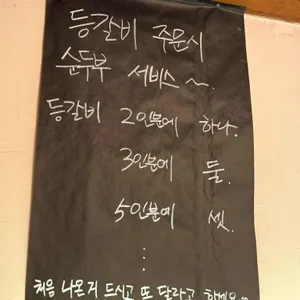 등갈비 주문시
순두부 서비스 ~.
등갈비 2인분에 하나.
3인분에 둘.
5인분에 셋.
⋮
처음 나온거 드시고 또 달라고 하세요